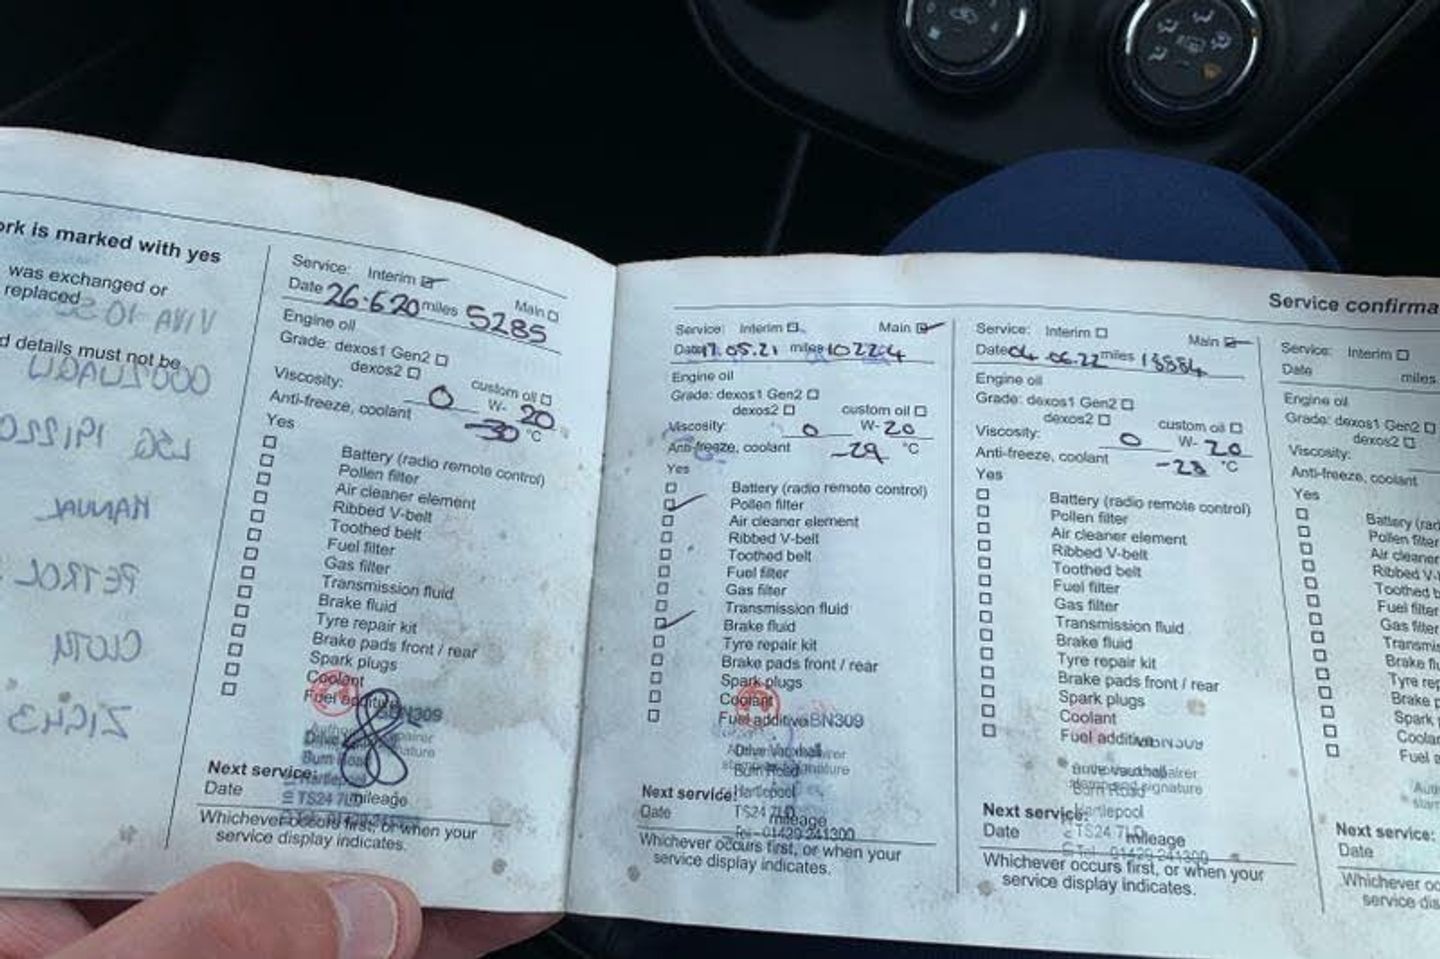 ork is marked with yes
was exchanged or
replaced
d details must not be
VIVA 10 SE
L5G 191220
MANUAL
PETROL
CLOTH
Z1CH3
Service: Interim Main
Date 26.6.20 miles 5285
Engine oil
Grade: dexos1 Gen2
dexos2 custom oil
Viscosity: 0 W- 20
Anti-freeze, coolant -30 °C
Yes
Battery (radio remote control)
Pollen filter
Air cleaner element
Ribbed V-belt
Toothed belt
Fuel filter
Gas filter
Transmission fluid
Brake fluid
Tyre repair kit
Brake pads front / rear
Spark plugs
Coolant
Fuel additive BN309
Burn Road
Hartlepool
Next service:
Date TS24 7LD mileage
Tel - 01429 241300
Whichever occurs first, or when your
service display indicates.
Service confirma
Service: Interim Main
Date 17.05.21 miles 10224
Engine oil
Grade: dexos1 Gen2
dexos2 custom oil
Viscosity: 0 W- 20
Anti-freeze, coolant -29 °C
Yes
Battery (radio remote control)
Pollen filter
Air cleaner element
Ribbed V-belt
Toothed belt
Fuel filter
Gas filter
Transmission fluid
Brake fluid
Tyre repair kit
Brake pads front / rear
Spark plugs
Coolant
Fuel additive BN309
Drive Vauxhall
Burn Road signature
Next service: Hartlepool
Date TS24 7LD mileage
Tel - 01429 241300
Whichever occurs first, or when your
service display indicates.
Service: Interim Main
Date 04.06.22 miles 13884
Engine oil
Grade: dexos1 Gen2
dexos2 custom oil
Viscosity: 0 W- 20
Anti-freeze, coolant -28 °C
Yes
Battery (radio remote control)
Pollen filter
Air cleaner element
Ribbed V-belt
Toothed belt
Fuel filter
Gas filter
Transmission fluid
Brake fluid
Tyre repair kit
Brake pads front / rear
Spark plugs
Coolant
Fuel additive BN309
Burn Road signature
Next service: Hartlepool
Date TS24 7LD mileage
Tel - 01429 241300
Whichever occurs first, or when your
service display indicates.
Service: Interim
Date miles
Engine oil
Grade: dexos1 Gen2
dexos2
Viscosity:
Anti-freeze, coolant
Yes
Battery (rad
Pollen filter
Air cleaner
Ribbed V-b
Toothed b
Fuel filter
Gas filter
Transmis
Brake flu
Tyre rep
Brake p
Spark p
Coolan
Fuel a
Next service:
Date
Whichever oc
service dis